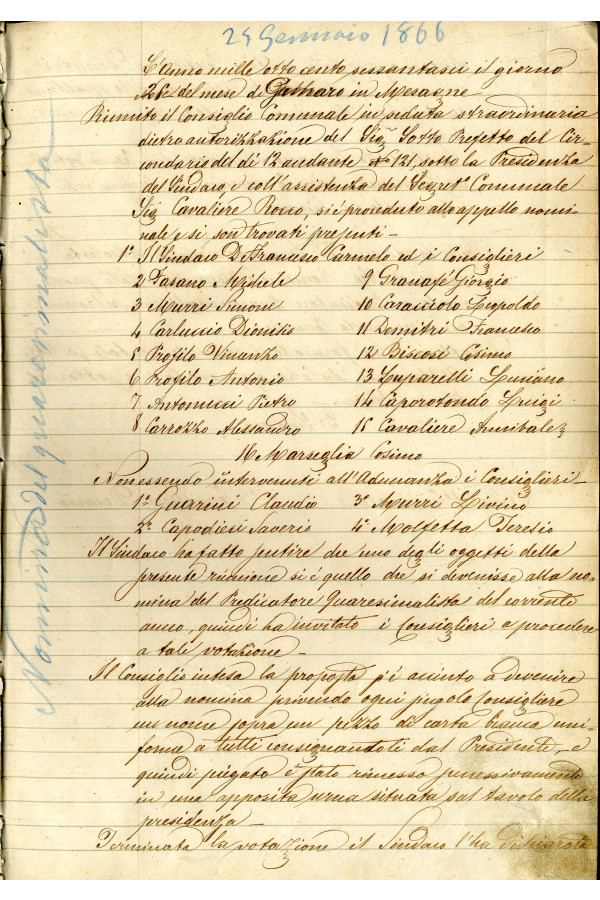 25 Gennaio 1866
Nomina del quaresimalista
L'Anno mille otto cento sessantasei il giorno
25 del mese di Gennaro in Mesagne
Riunito il Consiglio Comunale in seduta straordinaria
dietro autorizzazione del Sig.r Sotto Prefetto del Cir-
condario del dì 12 andante N° 121, sotto la Presidenza
del Sindaco, e coll'assistenza del Segret.o Comunale
Sig. Cavaliere Rocco, si è proceduto allo appello nomi-
nale e si son trovati presenti -
1° Il Sindaco D. Francesco Carmelo ed i Consiglieri
2 Fasano Michele 9 Granafé Giorgio
3 Murri Simone 10 Caracciolo Leopoldo
4 Carluccio Dionisio 11 Demitri Francesco
5 Profilo Vincenzo 12 Biscosi Cosimo
6 Profilo Antonio 13 Luparelli Luciano
7 Antonucci Pietro 14 Caporotondo Luigi
8 Carrozzo Alessandro 15 Cavaliere Annibale
16 Marseglia Cosimo
Non essendo intervenuti all'Adunanza i Consiglieri -
1° Guarini Claudio 3° Murri Livino
2° Capodieci Saverio 4° Molfetta Teresio
Il Sindaco ha fatto sentire che uno degli oggetti della
presente riunione si è quello che si devenisse alla no-
mina del Predicatore Quaresimalista del corrente
anno, quindi ha invitato i Consiglieri a procedere
a tale votazione -
Il Consiglio intesa la proposta s'è accinto a devenire
alla nomina scrivendo ogni singolo Consigliere
un nome sopra un pezzo di carta bianca uni-
forme a tutti consegnantoli dal Presidente, e
quindi piegato è stato rimesso successivamente
in una apposita urna situata sul tavolo della
presidenza -
Terminata la votazione il Sindaco l'ha dichiarata